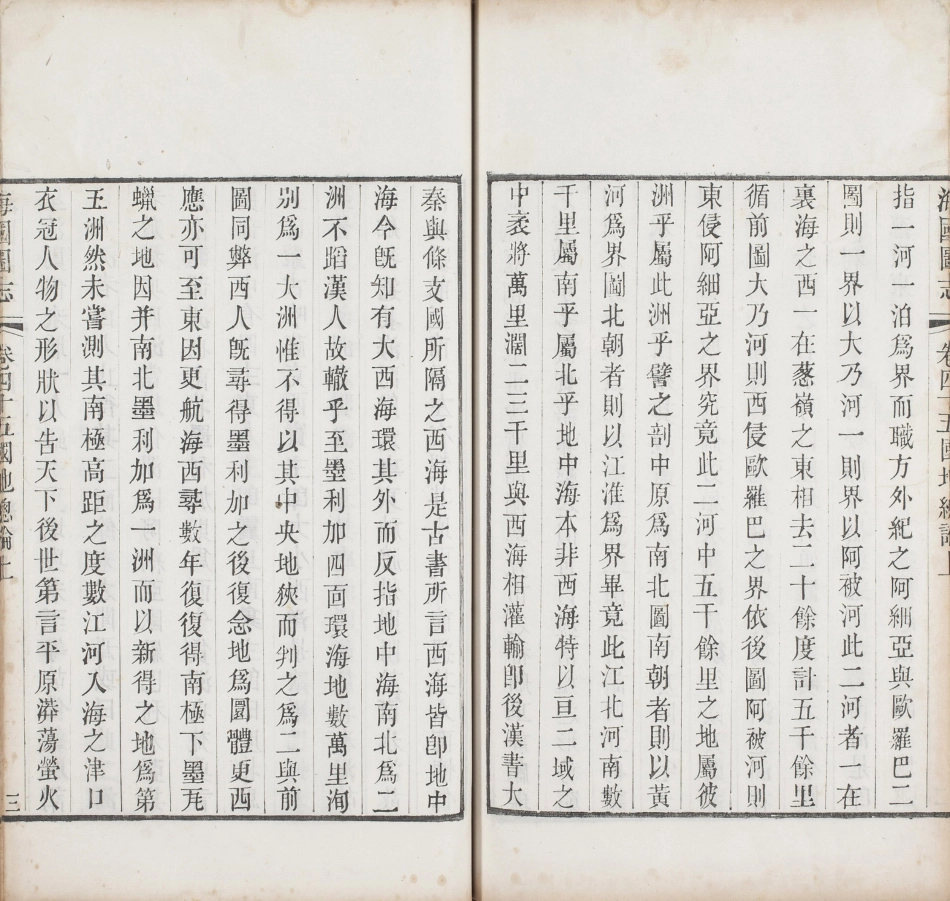 海國圖志 卷四十五國地總論上
指一河一泊爲界而職方外紀之阿細亞與歐羅巴二
圖則一界以大乃河一則界以阿被河此二河者一在
裏海之西一在蔥嶺之東相去二十餘度計五千餘里
循前圖大乃河則西侵歐羅巴之界依後圖阿被河則
東侵阿細亞之界究竟此二河中五千餘里之地屬彼
洲乎屬此洲乎譬之剖中原爲南北圖南朝者則以黃
河爲界圖北朝者則以江淮爲界畢竟此江北河南數
千里屬南乎屬北乎地中海本非西海特以亘二域之
中袤將萬里濶二三千里與西海相灌輸卽後漢書大
秦與條支國所隔之西海是古書所言西海皆卽地中
海今旣知有大西海環其外而反指地中海南北爲二
洲不蹈漢人故轍乎至墨利加四面環海地數萬里洵
別爲一大洲惟不得以其中央地狹而判之爲二與前
圖同弊西人旣尋得墨利加之後復念地爲圜體更西
應亦可至東因更航海西尋數年復復得南極下墨瓦
蠟之地因并南北墨利加爲一洲而以新得之地爲第
五洲然未嘗測其南極高距之度數江河入海之津口
衣冠人物之形狀以告天下後世第言平原漭蕩螢火
海國圖志 卷四十五國地總論上 三